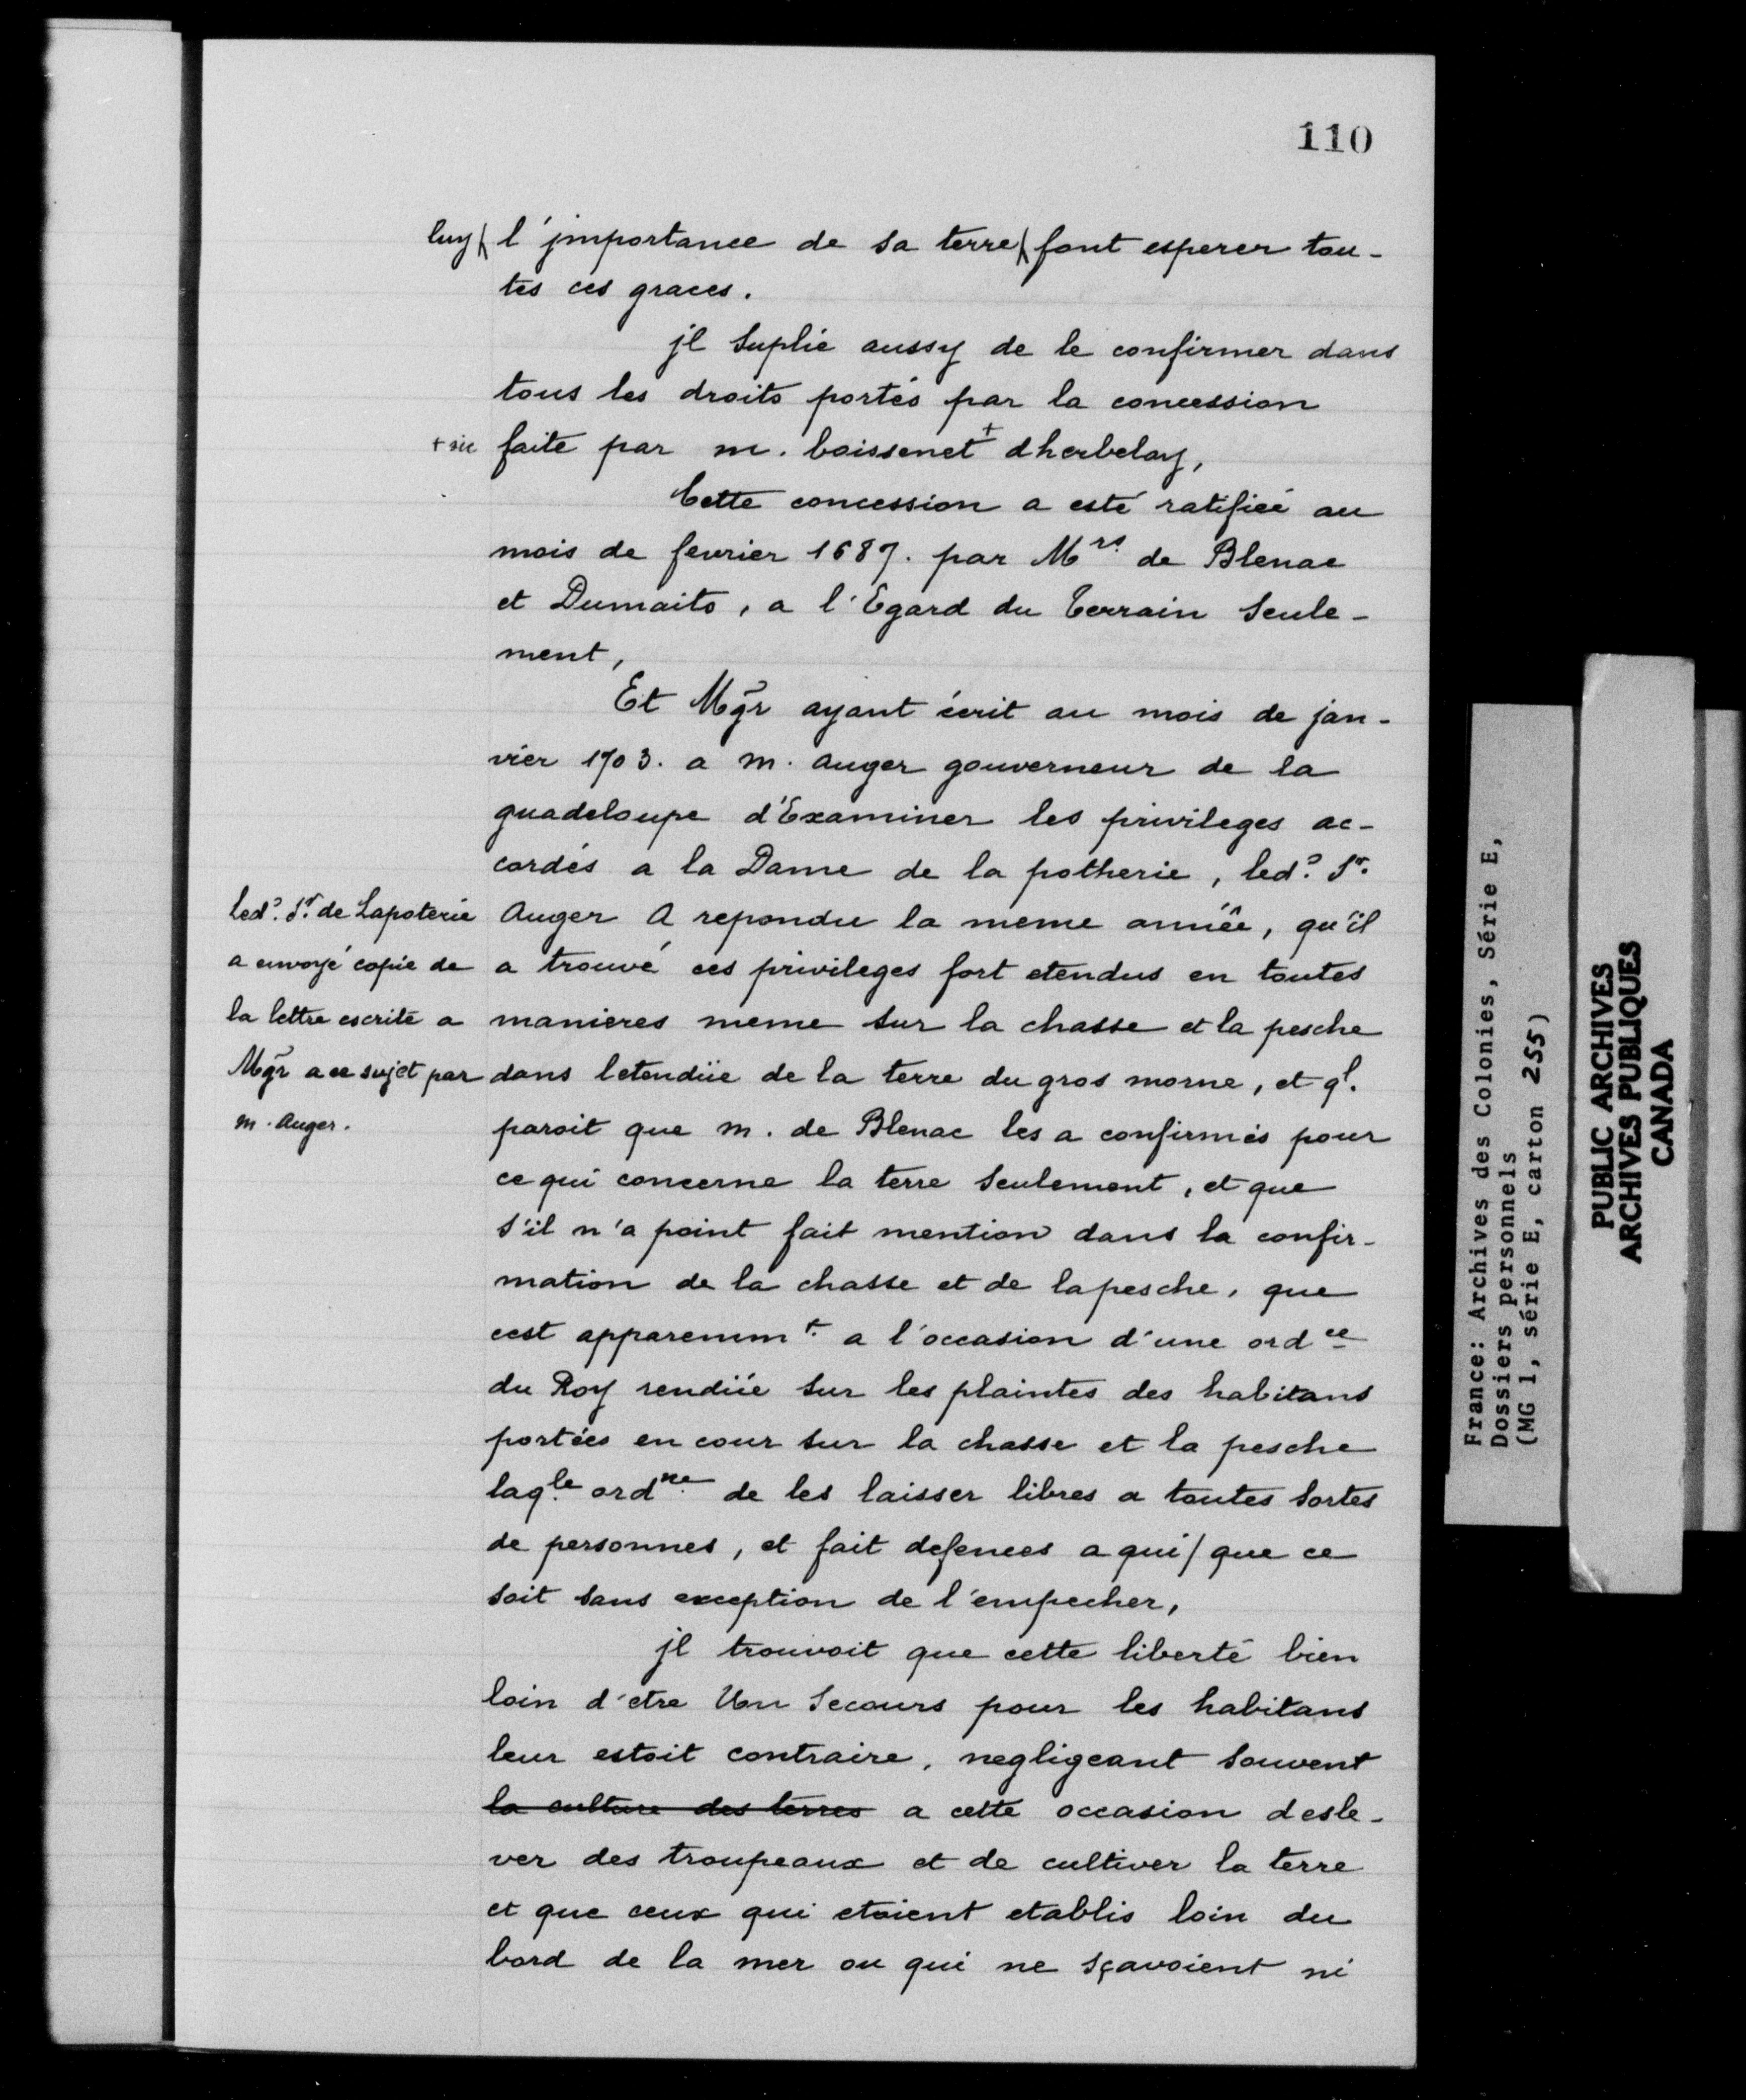 110
luy/ l'jmportance de sa terre / font esperer tou-
tes ces graces.
jl Suplie aussy de le confirmer dans
tous les droits portés par la concession
+ sic faite par m. boissenet + dherbelay,
Cette concession a esté ratifiée au
mois de fevrier 1687. par Mrs. de Blenac
et Dumaits, a l'Egard du terrain Seule-
ment,
Et Mgr ayant écrit au mois de jan-
vier 1703. a m. auger gouverneur de la
guadeloupe d'Examiner les privileges ac-
cordés a la Dame de la potherie, led. Sr.
Auger A repondu la meme année, qu'il
a trouvé ces privileges fort etendus en toutes
manieres meme sur la chasse et la pesche
dans letendüe de la terre du gros morne, et ql.
paroit que m. de Blenac les a confirmés pour
ce qui concerne la terre seulement, et que
s'il n'a point fait mention dans la confir-
mation de la chasse et de la pesche, que
cest apparemmt. a l'occasion d'une ordce
du Roy rendüe sur les plaintes des habitans
portées en cour sur la chasse et la pesche
laqle. ordne. de les laisser libres a toutes sortes
de personnes, et fait defences a qui/ que ce
soit sans exception de l'empecher,
jl trouvoit que cette liberté bien
loin d'etre Un Secours pour les habitans
leur estoit contraire, negligeant souvent
la culture des terres a cette occasion desle-
ver des troupeaux et de cultiver la terre
et que ceux qui etoient etablis loin du
bord de la mer ou qui ne sçavoient ni
led. Sr. de Lapoterie
a envoyé copie de
la lettre escrite a
Mgr a ce sujet par
m. Auger.
France: Archives des Colonies, Série E,
Dossiers personnels
(MG 1, série E, carton 255)
PUBLIC ARCHIVES
ARCHIVES PUBLIQUES
CANADA